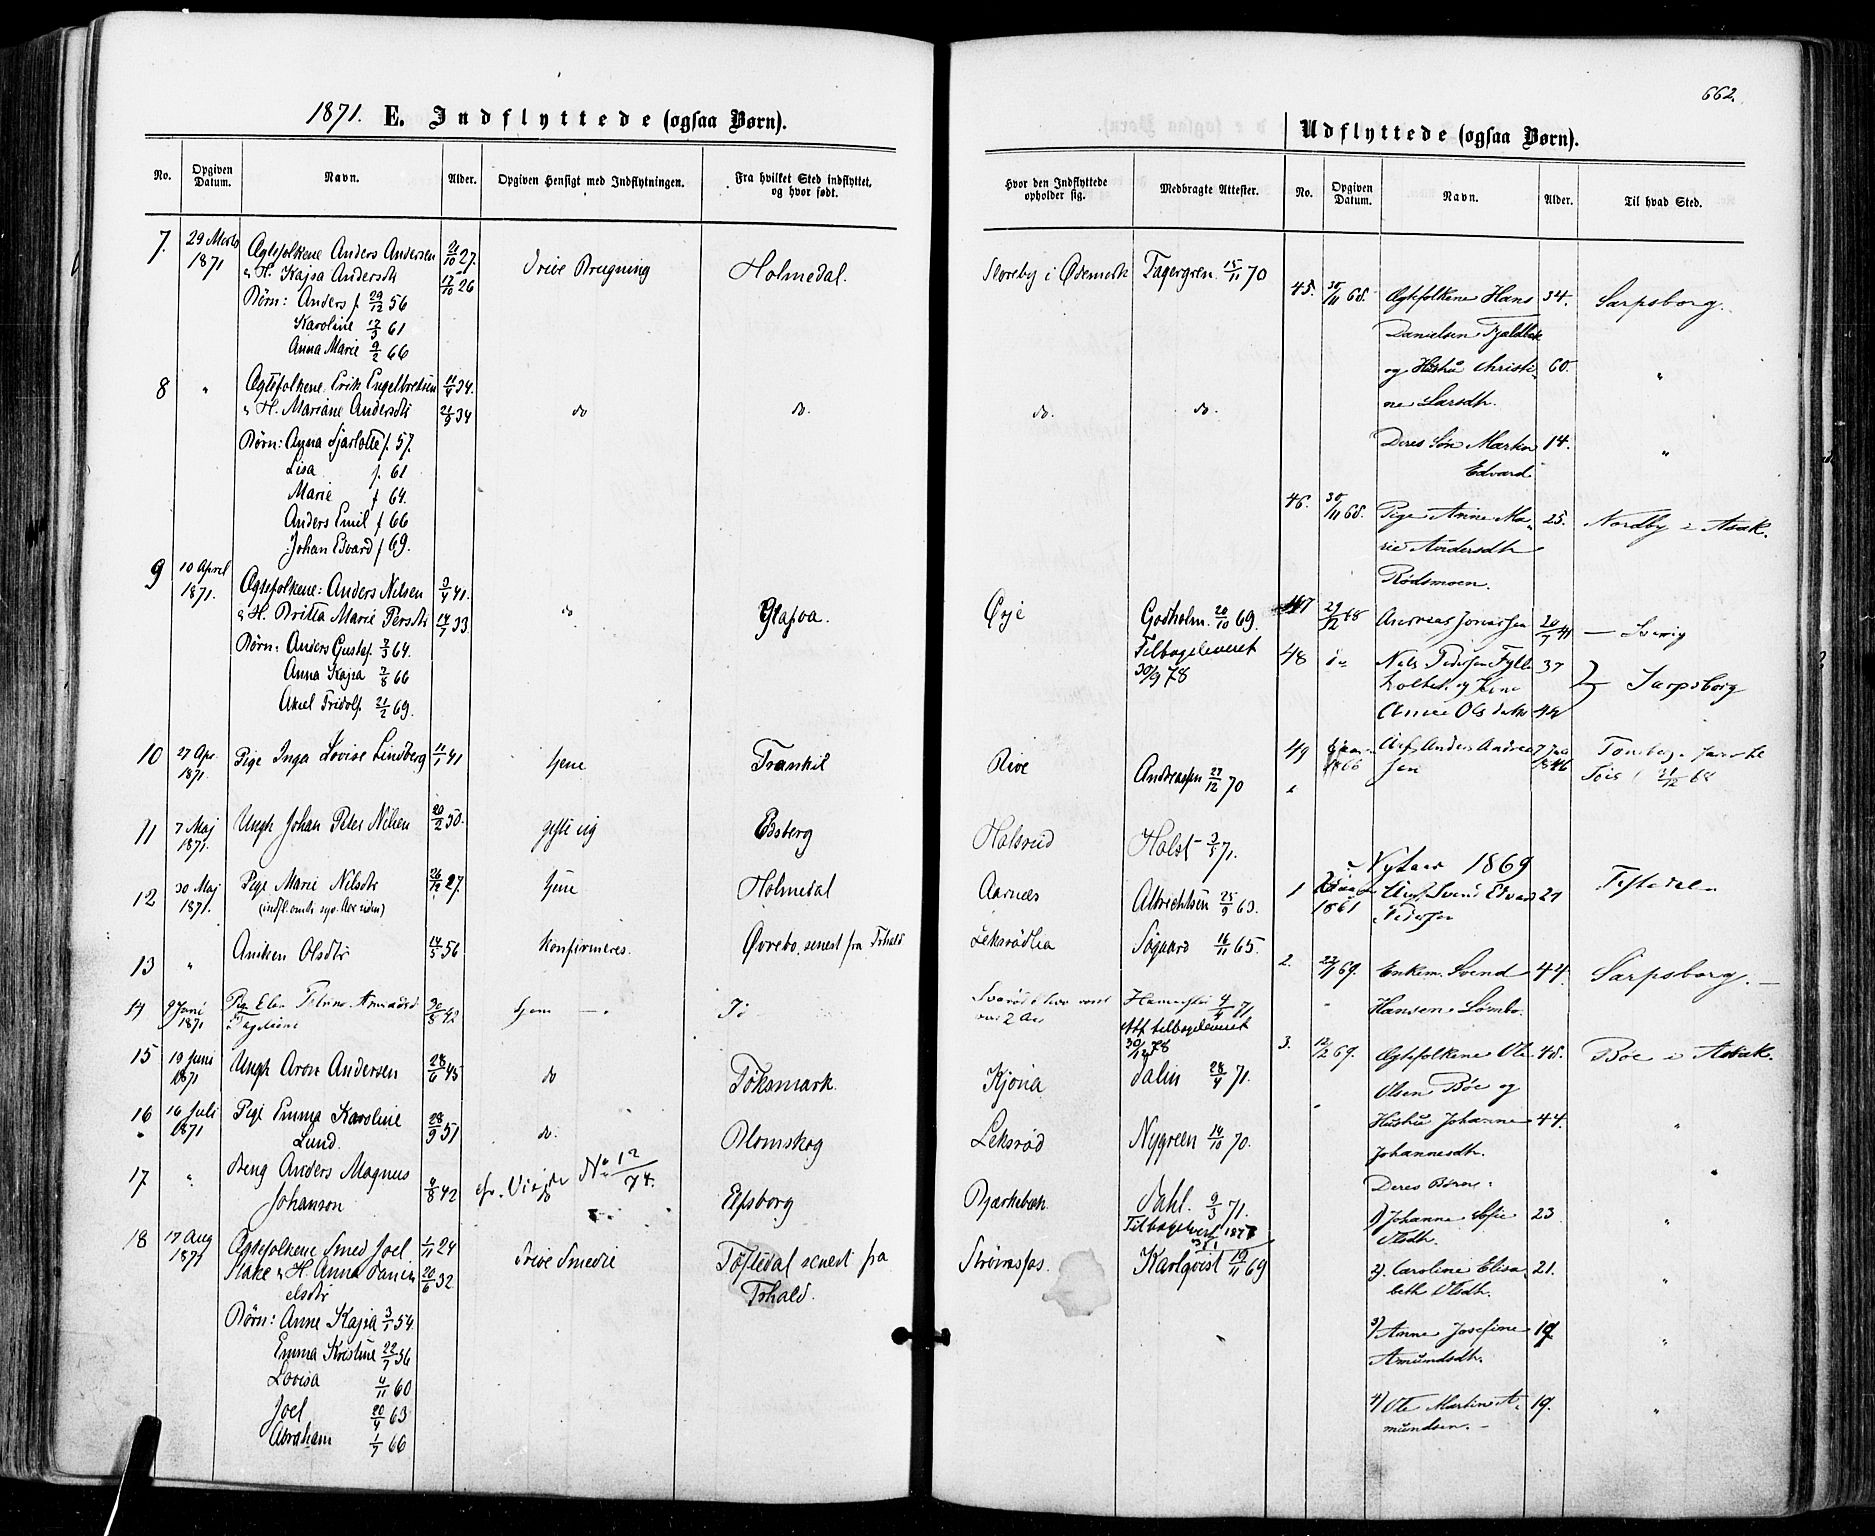 1871. E. Indflyttede (ogsaa Børn).
No. Opgiven Datum. Navn. Alder. Opgiven Hensigt med Indflytningen. Fra hvilket Sted indflyttet, og hvor født.
7. 29 Marts 1871 Ægtefolkene Anders Andersen 21/10 27. Drive Brugning Holmedal.
& H. Kajsa Andersdtr 17/10 26
Børn: Anders f. 29/12 56
Karoline 12/3 61
Anna Marie 9/2 66
8 " Ægtefolkene Erik Engelbretsen 11/4 34. do do.
& H. Mariane Andersdtr 21/9 34
Børn: Anna Sjarlotte f. 57.
Lisa f. 61
Marie f 64.
Anders Emil f 66
Johan Edvard f 69.
9 10 April 1871. Ægtefolkene: Anders Nilsen 3/4 41. do Glafva.
& H. Britta Marie Persdtr 14/7 33
Børn: Anders Gustaf. 3/3 64.
Anna Kajsa 7/8 66
Axel Fridolf 21/2 69.
10 27 Apr 1871. Pige Inga Lovise Lindberg 11/1 41 tjene Frankil
11 7 Maj 1871. Ungk Johan Peter Nilsen 20/2 50. gifte sig Edsberg
12 30 Maj 1871. Pige Marie Nilsdtr 26/12 27. tjene Holmedal
13 " Aniken Olsdtr 14/5 56 Konfirmeres. Øvrebo, senest fra Frhald
14 9 Juni 1871 Pige 30/8 42 tjene
15 19 Juni 1871 Ungk Aron Andersen 28/6 45 do Töksmark.
16 16 Juli 1871 Pige Emma Karoline 28/9 51 do. Blomskog
Lund.
17 " Dreng Anders Magnus 9/8 42 do Elfsborg
Johanson No 12/74.
18 17 Aug 1871 Ægtefolkene Smed Joel 1/11 24 Drive Smedie Töftedal senest fra
Stake & H. Anna Dani 20/6 32 Frhald.
elsdtr
Børn: Anne Kajsa 3/1 54.
Emma Kristine 22/7 56
Lovisa 4/11 60
Joel 20/4 63
Abraham 1/7 66
662.
Udflyttede (ogsaa Børn).
Hvor den Indflyttede opholder sig. Medbragte Attester. No. Opgiven Datum. Navn. Alder. Til hvad Sted.
Storeby i Ødemark Fagergren. 15/11 70
45. 30/11 68. Ægtefolkene Hans 34. Sarpsborg.
Danielsen
og Hustru Christi 60. "
ne Larsdtr.
do. do.
Deres Søn Martin 14. "
Edvard
46. 30/11 68. Pige Anne Ma- 25. Nordby i Asak.
rie Andersdtr
Rødsmoen.
Ørje Godholm. 20/10 69. 47 29/12 68 Andreas Jonassen 20/7 41 — Sverig
Tilbageleveret
30/9 78
48 do Nels Pedersen 37 Sarpsborg
og Kone
Anne Olsdatter 49
Rive Andreassen 27/12 70
49 Anders Andrea 7 Juli 1846
sen 21/12 68
Halsrud Holst 3/5 71.
Nytaar 1869
Aarnæs Albrichtsen 25/9 63. 1 Svend Edvard 29 Tistedalen
Pedersen
Leksrødlia Søgaard 16/11 65. 2. 22/1 69. Enkem. Svend 44. Sarpsborg. —
Hansen Lømbo.
4/4 71
Att tilbageleveret
30/12 78 3. 12/2 69. Ægtefolkene Ole 48. Bøe i Asak.
Kjona Dalin 28/4 71. Olsen Bøe og
Leksrød Nygreen 14/10 70. Hustru Johanne 44. "
Johannesdtr.
Bjerkebæk Dahl. 9/3 71. Deres Børn:
Tilbagelevert 1877
1) Johanne Sofie 23 "
Olsdtr.
Strømsfos. Karlqvist 19/11 69 2). Caroline Elisa- 21. "
beth Olsdtr.
3) Anne Josefine 19 "
Amundsdtr.
4) Ole Martin A- 19. "
mundsen. —